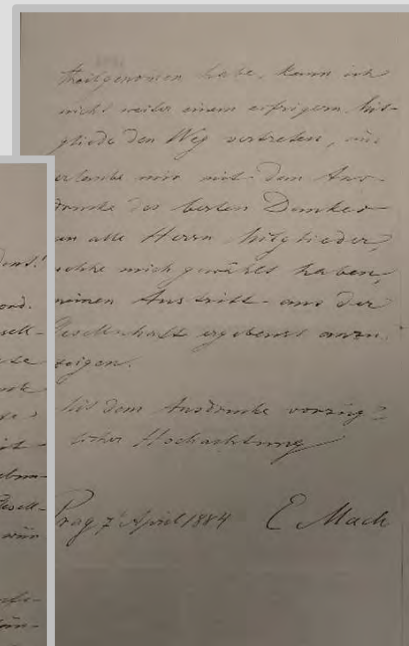 theilgenommen habe, kann ich
nicht weiter einem eifrigern Mit-
gliede den Weg vertreten, und
erlaube mir mit dem Aus-
drucke des besten Dankes
an alle Herrn Mitglieder,
welche mich gewählt haben,
meinen Austritt aus der
Gesellschaft ergebenst anzu-
zeigen.
Mit dem Ausdrucke vorzüg-
licher Hochachtung
Prag 7 April 1884 E Mach